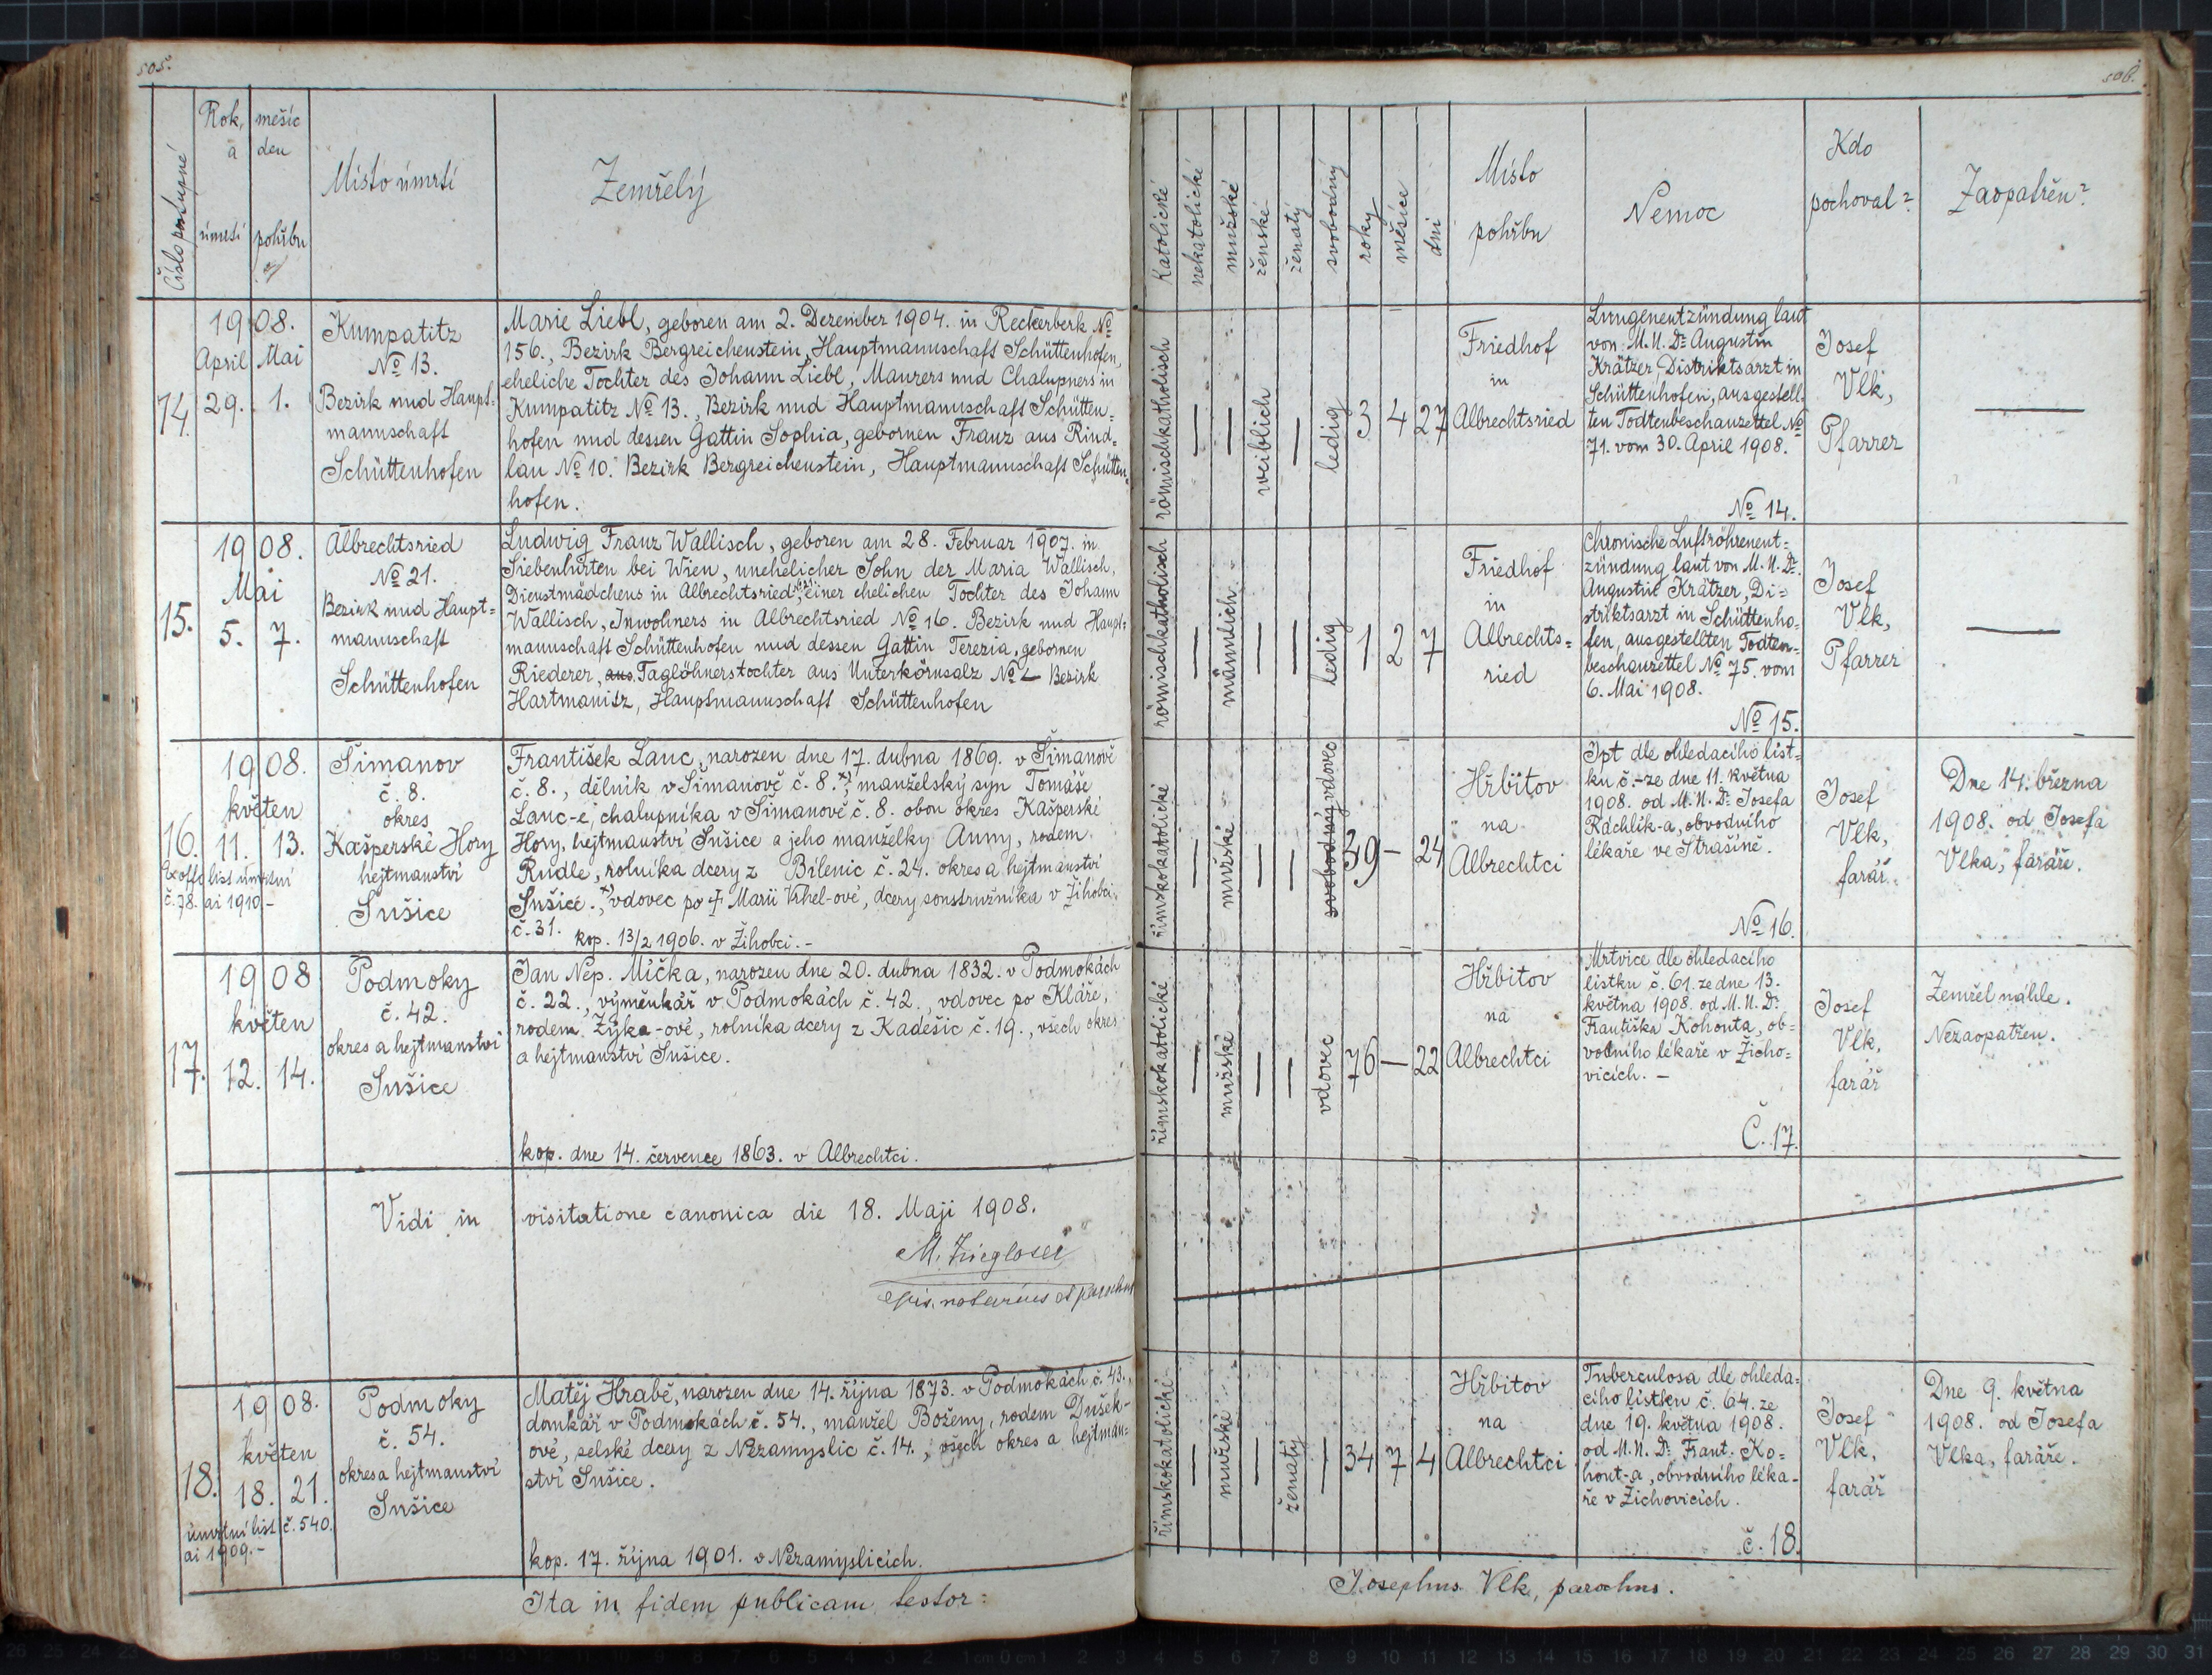 505.
Číslo postupné
Rok, měsíc
a den
úmrtí pohřbu
Místo úmrtí
Zemřelý
14.
1908.
April Mai
29. 1.
Kumpatitz
No 13.
Bezirk und Haupt-
mannschaft
Schüttenhofen
Marie Liebl, geboren am 2. Dezember 1904. in Reckerberk No
156., Bezirk Bergreichenstein, Hauptmannschaft Schüttenhofen,
eheliche Tochter des Johann Liebl, Maurers und Chalupners in
Kumpatitz No 13., Bezirk und Hauptmannschaft Schütten-
hofen und dessen Gattin Sophia, gebornen Franz aus Rind-
lau No 10. Bezirk Bergreichenstein, Hauptmannschaft Schütten-
hofen.
15.
1908.
Mai
5. 7.
Albrechtsried
No 21.
Bezirk und Haupt=
mannschaft
Schüttenhofen
Ludwig Franz Wallisch, geboren am 28. Februar 1907. in
Siebenhirten bei Wien, unehelicher Sohn der Maria Wallisch,
Dienstmädchens in Albrechtsried, einer ehelichen Tochter des Johann
Wallisch, Inwohners in Albrechtsried No 16. Bezirk und Haupt=
mannschaft Schüttenhofen und dessen Gattin Terezia, gebornen
Riederer, aus Taglöhnerstochter aus Unterkörnsalz No 2 Bezirk
Hartmanitz, Hauptmannschaft Schüttenhofen
16.
1908.
květen
11. 13.
Ex offo list úmrtní
č. 78. ai 1910.-
Šimanov
č. 8.
okres
Kašperské Hory
hejtmanství
Sušice
František Lanc, narozen dne 17. dubna 1869. v Šimanově
č. 8., dělník v Šimanově č. 8. x), manželský syn Tomáše
Lanc-e, chalupníka v Šimanově č. 8. obou okres Kašperské
Hory, hejtmanství Sušice a jeho manželky Anny, rodem
Rudle, rolníka dcery z Bílenic č. 24. okres a hejtmanství
Sušice., x) vdovec po † Marii Vrhel-ové, dcery soustružníka v Žihobci
č. 31. kop. 13/2 1906. v Žihobci.-
17.
1908
květen
12. 14.
Podmoky
č. 42.
okres a hejtmanství
Sušice
Jan Nep. Míčka, narozen dne 20. dubna 1832. v Podmokách
č. 22., výměnkář v Podmokách č. 42., vdovec po Kláře,
rodem Zýka-ové, rolníka dcery z Kadešic č. 19., všech okres
a hejtmanství Sušice.
kop. dne 14. července 1863. v Albrechtci.
Vidi in visitatione canonica die 18. Maji 1908.
epis. notarius et parochus
18.
1908.
květen
18. 21.
úmrtní list č. 540.
ai 1909.-
Podmoky
č. 54.
okres a hejtmanství
Sušice
Matěj Hrabě, narozen dne 14. října 1873. v Podmokách č. 43.,
domkář v Podmokách č. 54., manžel Boženy, rodem Dušek-
ové, selské dcery z Nezamyslic č. 14., všech okres a hejtman=
ství Sušice.
kop. 17. října 1901. v Nezamyslicích.
Ita in fidem publicam testor:
506.
Katolické
nekatolické
mužské
ženské
ženatý
svobodný
roky
měsíce
dni
Místo
pohřbu
Nemoc
Kdo
pochoval?
Zaopatřen?
römischkatholisch
weiblich
ledig
3 4 27
Friedhof
in
Albrechtsried
Lungenentzündung laut
von M. U. Dr Augustin
Krätzer, Distriktsarzt in
Schüttenhofen, ausgestell-
ten Todtenbeschauzettel No
71. vom 30. April 1908.
No 14.
Josef
Vlk,
Pfarrer
römischkatholisch
männlich
ledig
1 2 7
Friedhof
in
Albrechts=
ried
Chronische Luftröhrenent=
zündung laut von M. U. Dr
Augustin Krätzer, Di=
striktsarzt in Schüttenho=
fen, ausgestellten Todten=
beschauzettel No 75. vom
6. Mai 1908.
No 15.
Josef
Vlk,
Pfarrer
římskokatolické
mužské
svobodný vdovec
39 - 24
Hřbitov
na
Albrechtci
dle ohledacího líst=
ku č.- ze dne 11. května
1908. od M. U. Dr Josefa
Ráchlík-a, obvodního
lékaře ve Strašíně.
No 16.
Josef
Vlk,
farář.
Dne 14. března
1908. od Josefa
Vlka, faráře.
římskokatolické
mužské
vdovec
76 — 22
Hřbitov
na
Albrechtci
Mrtvice dle ohledacího
lístku č. 61. ze dne 13.
května 1908. od M. U. Dr
Františka Kohouta, ob=
vodního lékaře v Žicho=
vicích. -
Č. 17.
Josef
Vlk,
farář
Zemřel náhle.
Nezaopatřen.
římskokatolické
mužské
ženatý
34 7 4
Hřbitov
na
Albrechtci
Tuberculosa dle ohleda=
cího lístku č. 64. ze
dne 19. května 1908.
od M. U. Dr Frant. Ko=
hout-a, obvodního léka-
ře v Žichovicích.
č. 18.
Josef
Vlk,
farář
Dne 9. května
1908. od Josefa
Vlka, faráře.
Josephus Vlk, parochus.